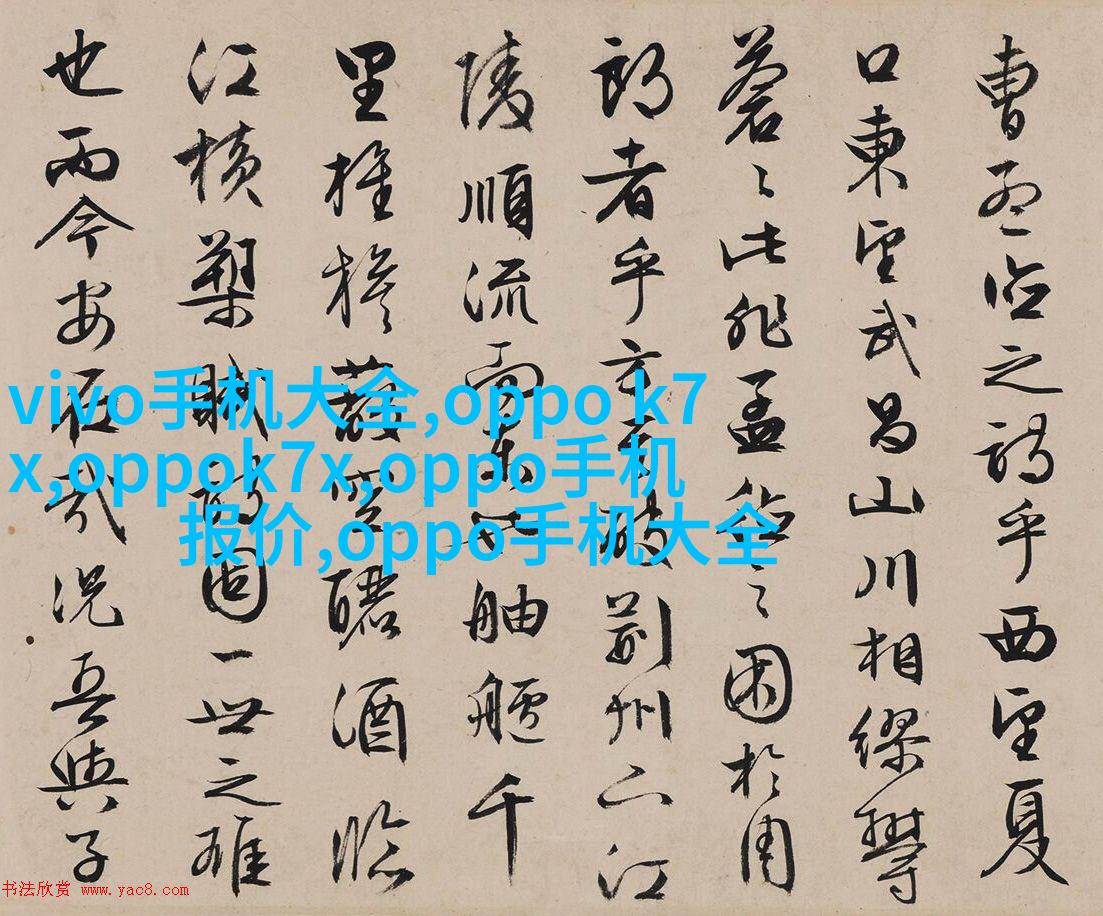 曹孟德之詩乎西望夏
口東望武昌山川相繆鬱
蒼〻此非孟德〻困於周
郎者乎方其破荊州下江
陵順流而東也舳艫千
里旌旗蔽空釃酒臨
江橫槊賦詩固一世之雄
也而今安在哉況吾與子
vivo手机大全,oppo k7
x,oppok7x,oppo手机
报价,oppo手机大全
书法欣赏 www.yac8.com